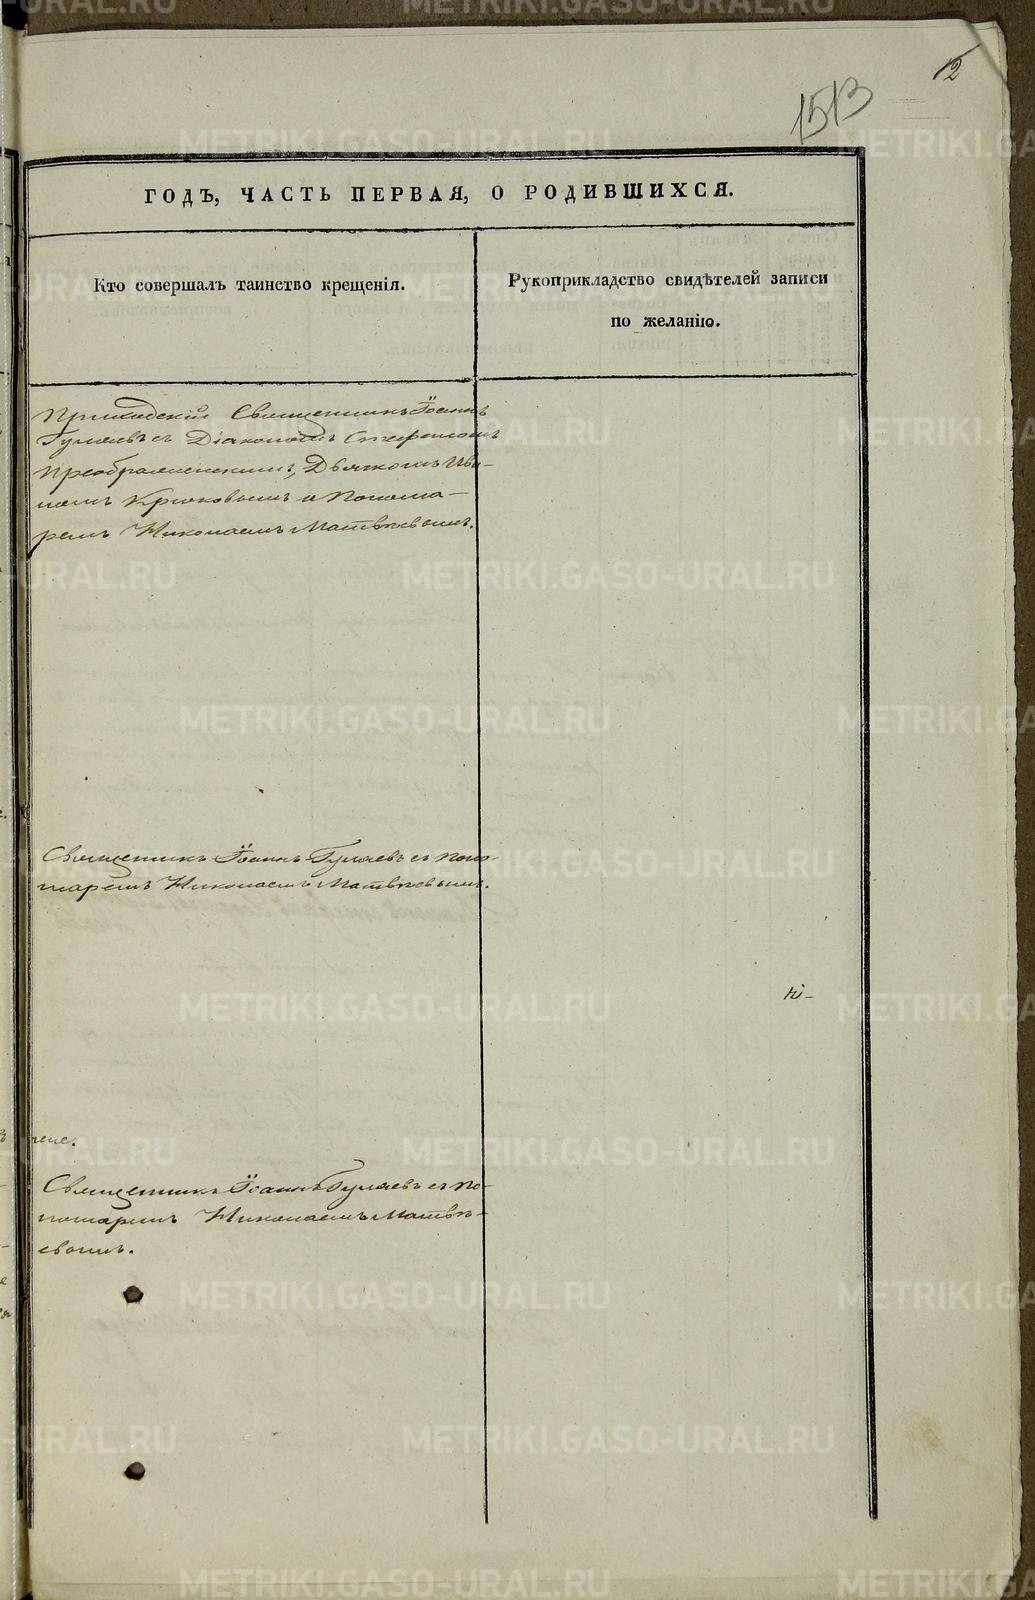 12
1513
ГОДЪ, ЧАСТЬ ПЕРВАЯ, О РОДИВШИХСЯ.
Кто совершалъ таинство крещенія.
Рукоприкладство свидѣтелей записи
по желанію.
Приходскій Священникъ Іоаннъ
Гуляевъ съ Діакономъ Стефаномъ
Преображенскимъ, Дьячкомъ Ива-
номъ Крюковымъ и Понома-
ремъ Николаемъ Матвѣевымъ.
Священникъ Іоаннъ Гуляевъ съ Поно-
маремъ Николаемъ Матвѣевымъ.
Священникъ Іоаннъ Гуляевъ съ По-
номаремъ Николаемъ Матвѣ-
евымъ.
METRIKI.GASO-URAL.RU